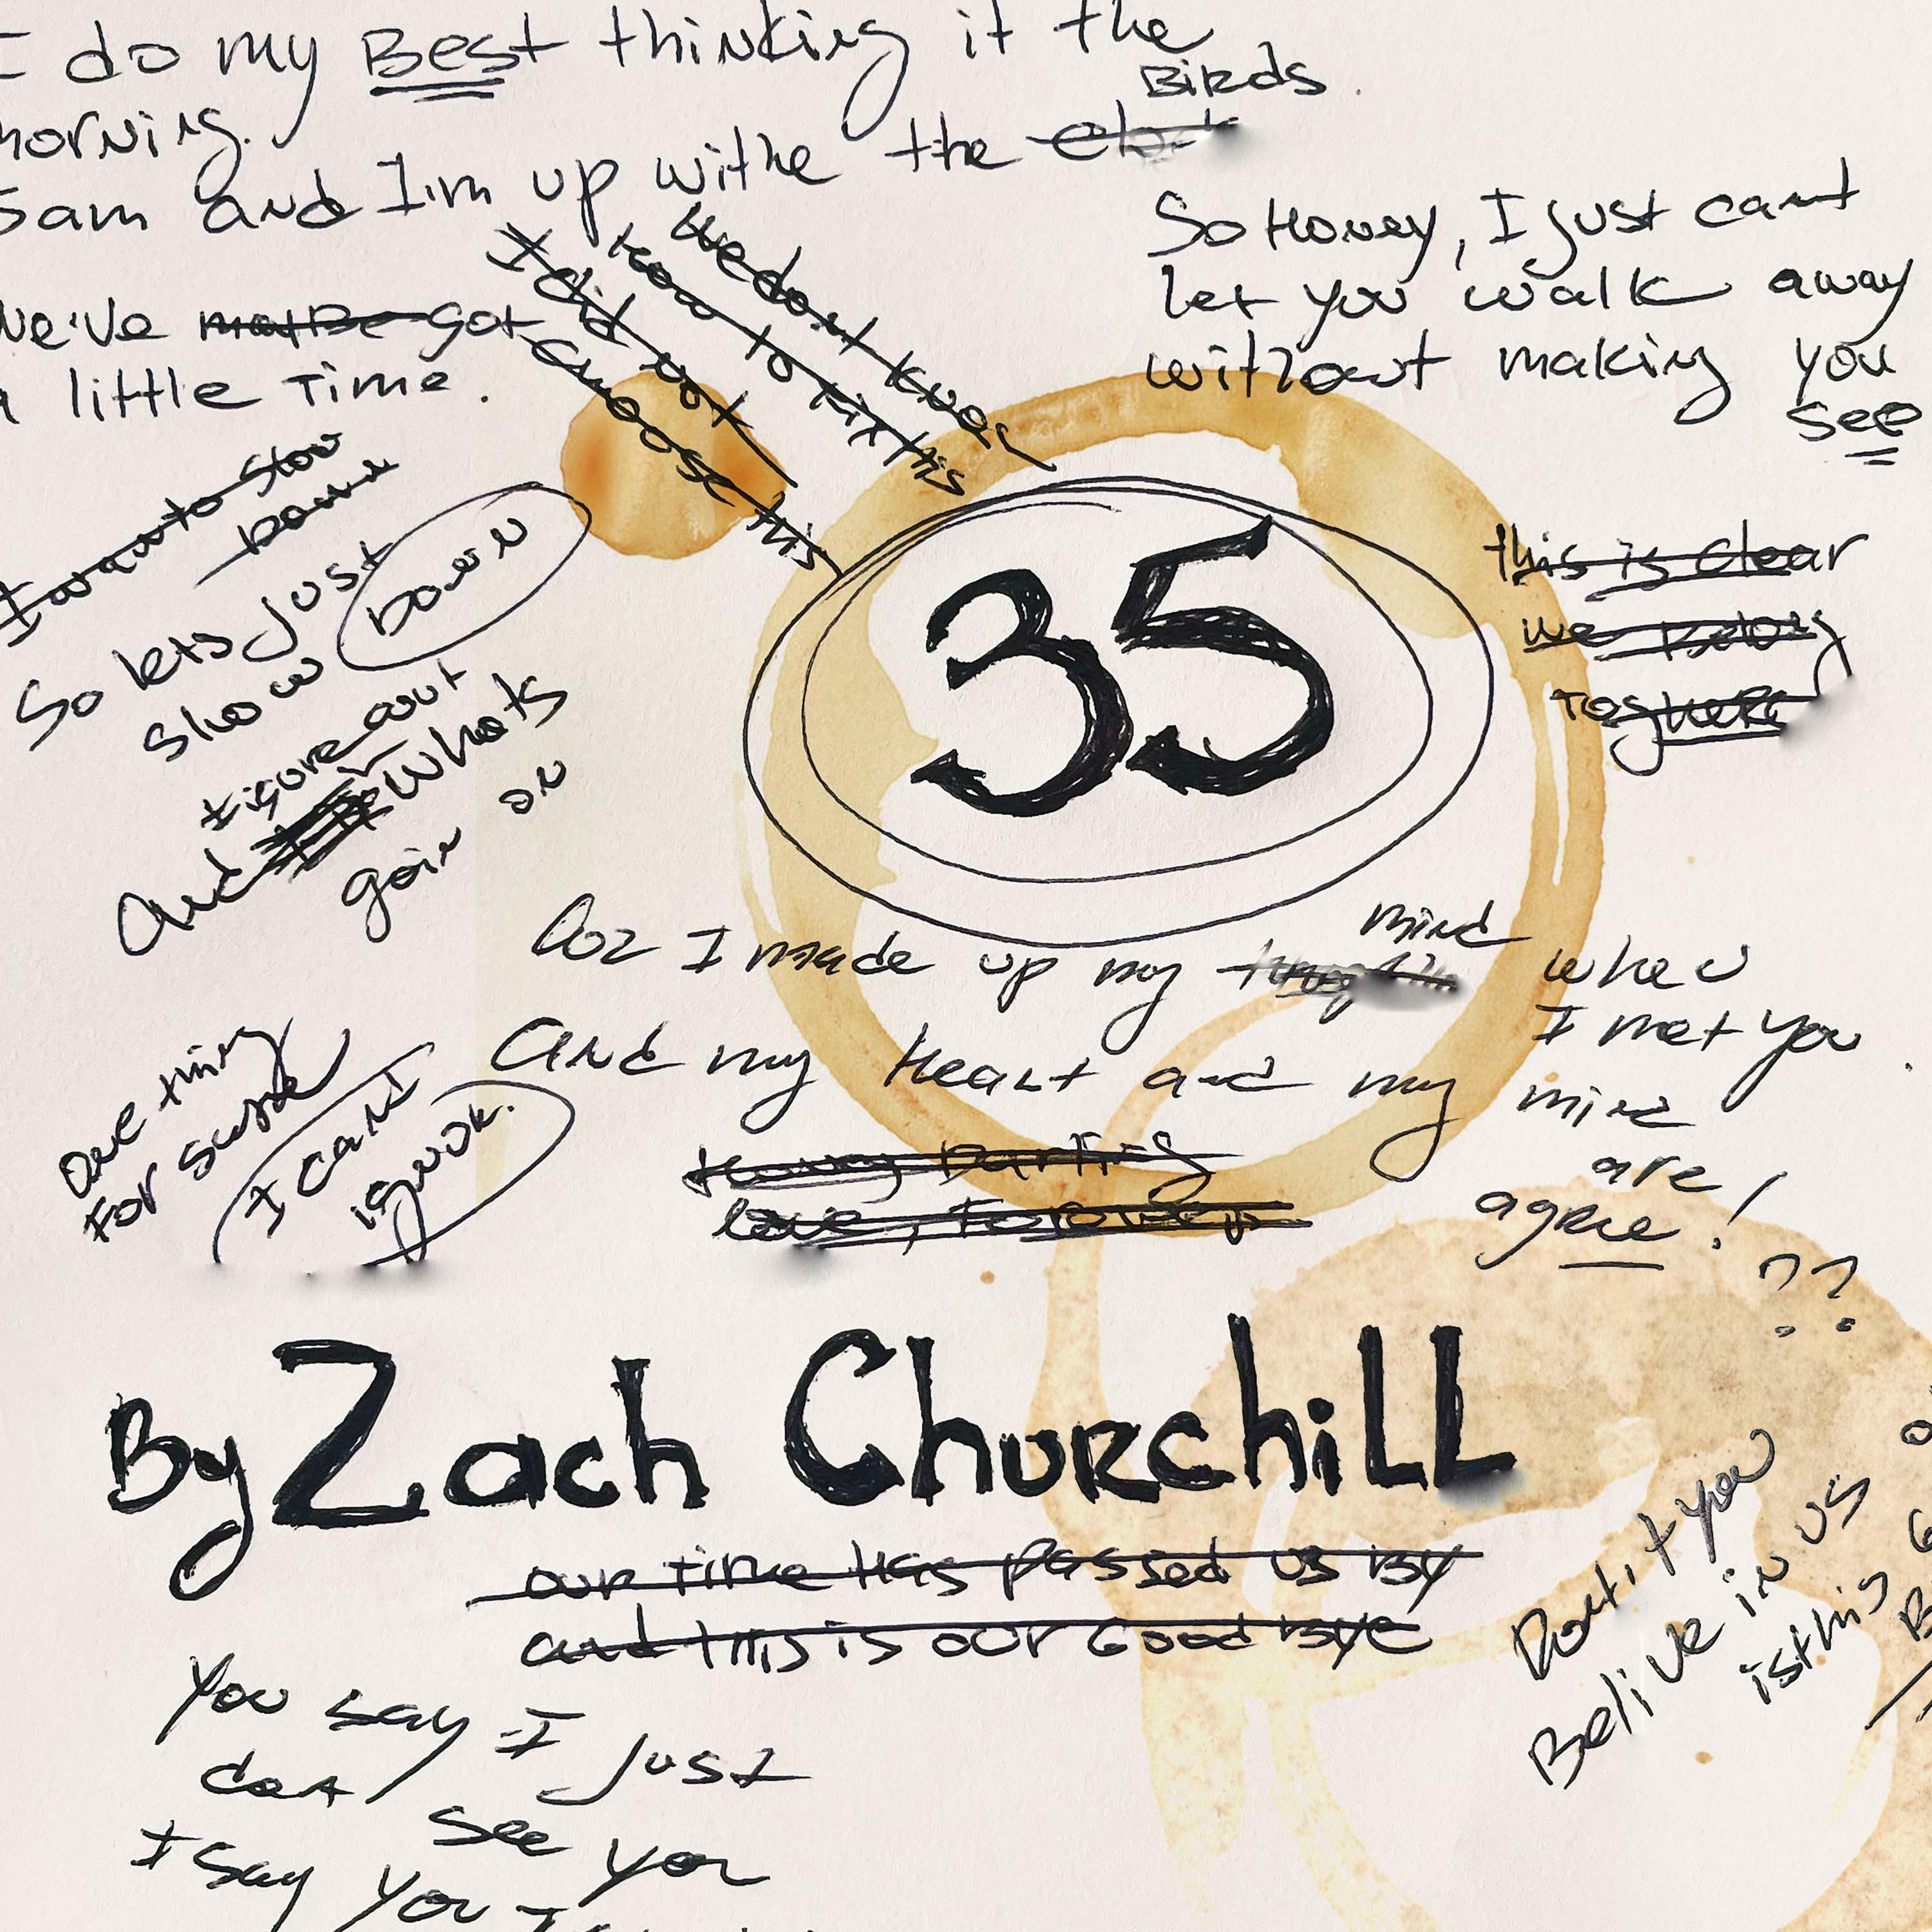 I do my Best thinking it the
morning.
Birds
5am and I'm up withe the
So Honey, I just cant
let you walk away
without making you
see
we've maybe got
a little Time.
I did not
choose this
We dont know
how to fix this
I want to slow
down
So lets just
slow down
figure out
and whats
goin on
35
this is clear
we belong
Together
Coz I made up my mind when
I met you.
and my Heart and my mind
are
agree!
??
One thing
For sure
I cant
ignor.
Honey Darling
love, Forever
By Zach Churchill
our time Has passed us By
and this is our Good Bye
Dont you
Belive in us
is this
You say I just
dont see you
I say you